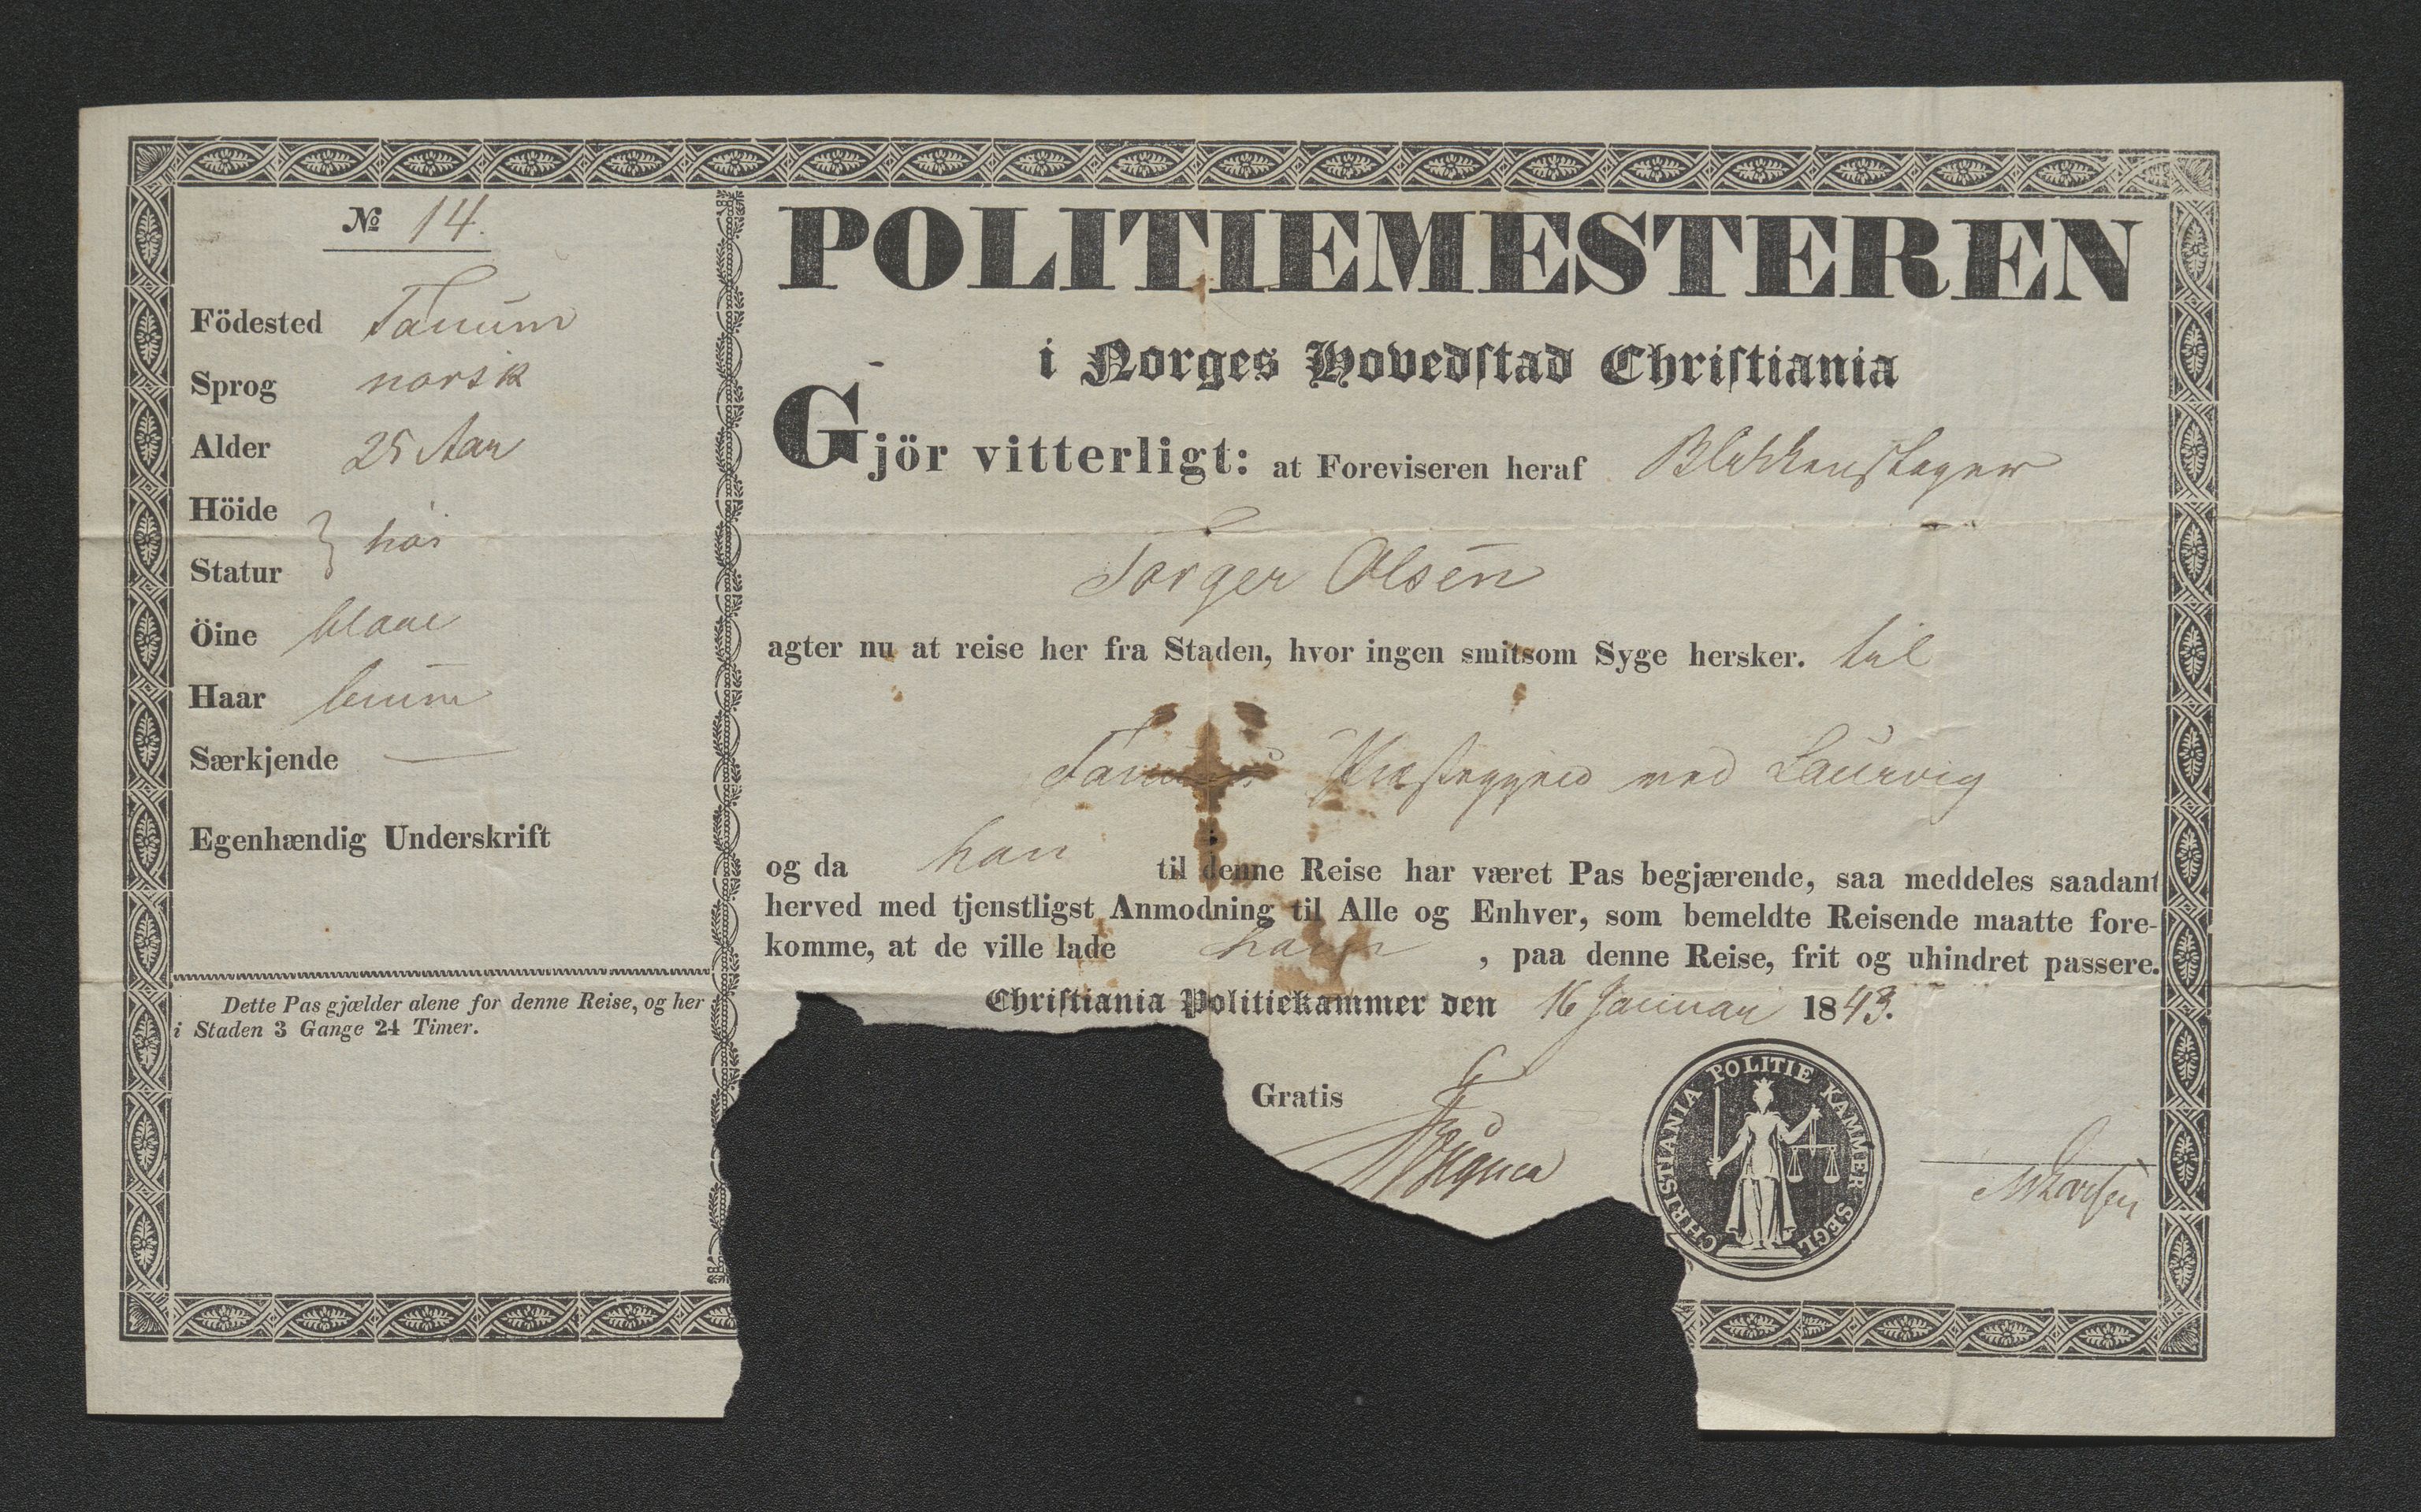 № 14.
Födested Tanum
Sprog norsk
Alder 25 Aar
Höide
Statur } høi
Öine blaae
Haar bruun
Særkjende —
Egenhændig Underskrift
Dette Pas gjælder alene for denne Reise, og her
i Staden 3 Gange 24 Timer.
POLITIEMESTEREN
i Norges Hovedstad Christiania
Gjör vitterligt: at Foreviseren heraf Blikkenslager
Torger Olsen
agter nu at reise her fra Staden, hvor ingen smitsom Syge hersker. til
Tanums Præstegjeld ved Laurvig
og da han til denne Reise har været Pas begjærende, saa meddeles saadant
herved med tjenstligst Anmodning til Alle og Enhver, som bemeldte Reisende maatte fore-
komme, at de ville lade ham, paa denne Reise, frit og uhindret passere.
Christiania Politiekammer den 16 Januar 1843.
Gratis
CHRISTIANIA POLITIE KAMMER SEGL